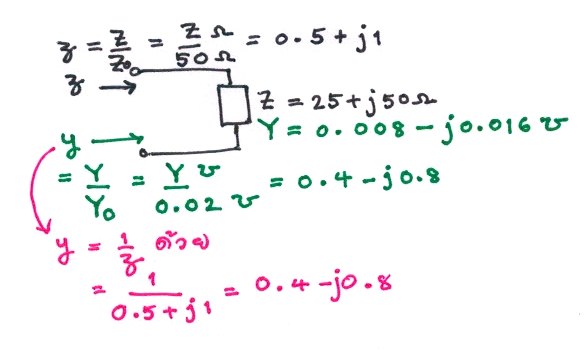 z = Z/Z0 = Z Ω/50 Ω = 0.5 + j1
z →
Z = 25 + j50 Ω
Y = 0.008 - j0.016 ʊ
y →
= Y/Y0 = Y ʊ/0.02 ʊ = 0.4 - j0.8
y = 1/z ด้วย
= 1/(0.5 + j1) = 0.4 - j0.8